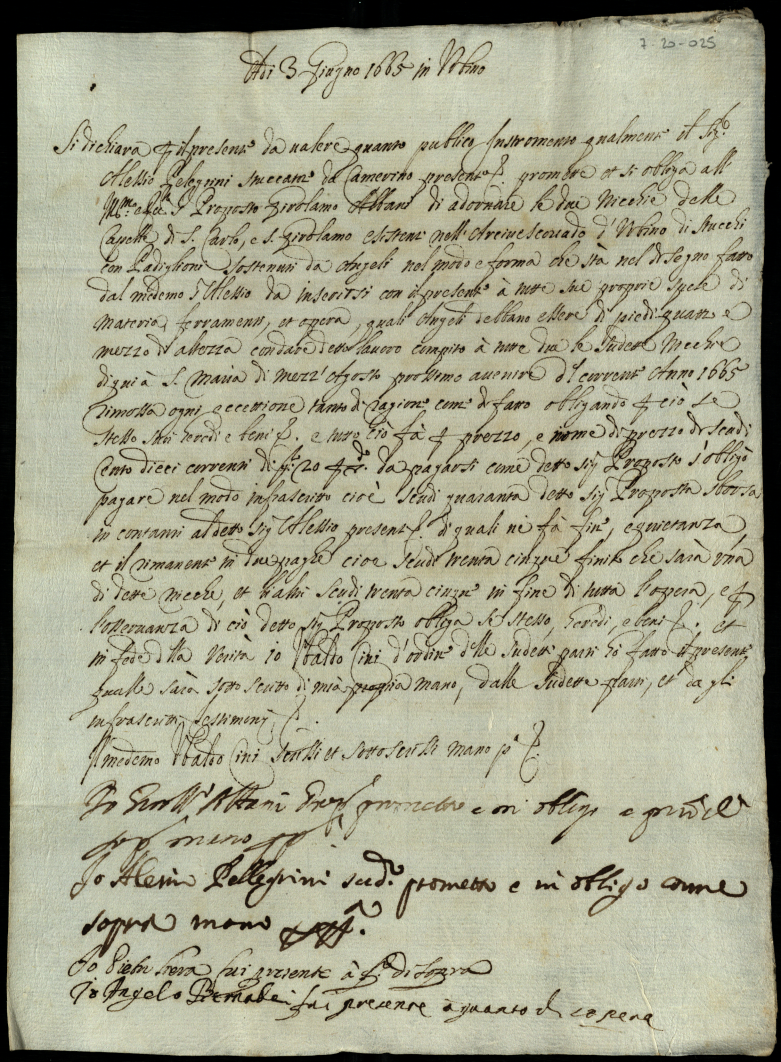 7-20-025
Adi 3 Giugno 1665 in Urbino
Si dichiara p il present.e da valere quanto publico Instromento qualment.e il Sig.r
Alessio Pelegrini stuccat.e da Camerino present.e p. promette et si obliga all
Ill.mo e R.mo S.r Proposto Girolamo Albani di adornare le due Nicchie delle
Capelle di S. Carlo, e S. Girolamo esistent.i nell'Arcivescovado d'Urbino di stucchi
con Padiglioni sostenuti da Angeli nel modo e forma che stà nel disegno fatto
dal medemo S.r Alessio da inserirsi con il present.e à tutte sue proprie spese di
Materia, ferramenti, et opera, quali Angeli debbano essere di piedi quattro e
mezzo di altezza con dare detto lavoro compito à tutte due le sudette Nicchie
di quà à S. Maria di Mezz'Agosto prossimo avenire d'l corrent.e Anno 1665
rimossa ogni eccettione tanto di ragione com.e di fatto obligando p ciò se
stesso suoi heredi e beni p. e tutto ciò fà p prezzo, e nome di prezzo di scudi
Cento dieci correnti di g. 20 p da pagarsi come detto Sig.r Proposto s'obligò
pagare nel modo infrascritto cioè scudi quaranta detto Sig.r Proposto sborsa
in contanti al detto Sig.r Alessio present.e p. di quali nè fà fin.e, e quietanza
et il rimanent.e in due paghe cioe scudi trenta cinque finito che sarà una
di dette nicchie, et li altri scudi trenta cinq.e in fine di tutta l'opera, e p
l'osservanza di ciò detto Sig.r Proposto obliga se stesso, heredi, e beni p. et
in fede d.lla verità io Ubaldo Cini d'ordin.e delle sudett.e parti hò fatto il present.e
qualle sarà sotto scritto di mia propria mano, dalle sudette parti, et da gli
infrascritti testimonij p.
Il medemo Ubaldo Cini scrissi et sotto scrissi mano p.a p.
Io Girol.mo Albani Prop.to prometto e mi obligo e
sop.a mano pp.a
Io Alesio Pellegrini sud.o prometto e mi obligo come
sopra mano pp.a
Io Pietro fui presente à q.to di sopra
Io Angelo Bernabei fui presente a quanto di sopra